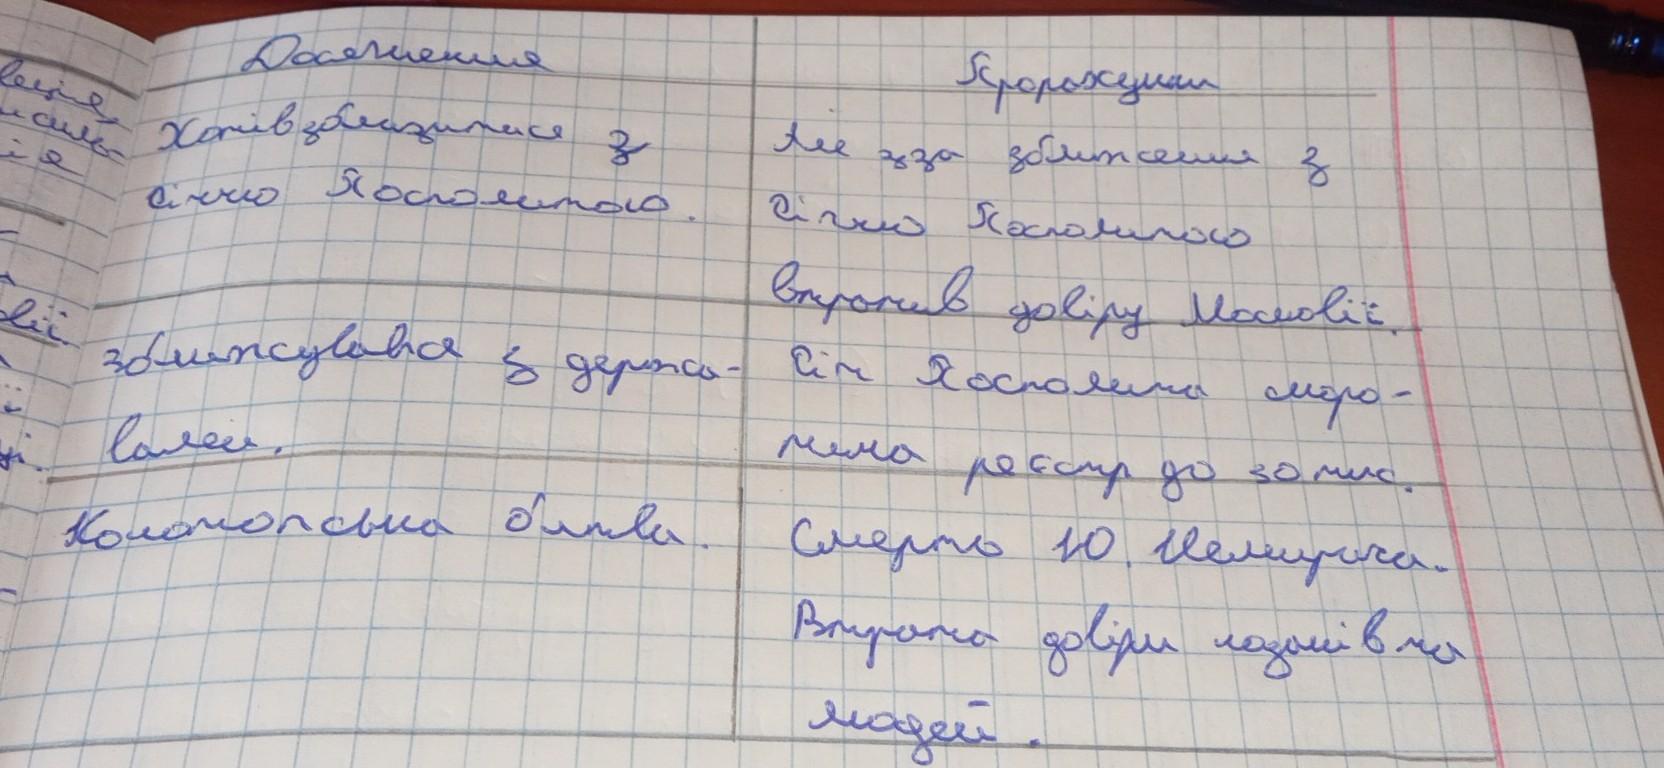 Досягнення
Прорахунки
Хотів зблизитися з
Річчю Посполитою.
Але зза зближення з
Річчю Посполитою
втратив довіру Московії.
зближувався з держа-
вами.
Річ Посполита скоро-
тила реєстр до 30 тис.
Конотопська битва.
Смерть Ю. Немирича.
Втрата довіри козаків та
людей.